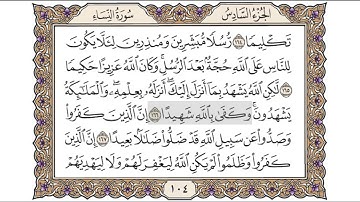 الجزء السادس
سورة النساء
تَكْلِيمًا ١٦٤ رُّسُلًا مُّبَشِّرِينَ وَمُنذِرِينَ لِئَلَّا يَكُونَ
لِلنَّاسِ عَلَى اللَّهِ حُجَّةٌ بَعْدَ الرُّسُلِ وَكَانَ اللَّهُ عَزِيزًا حَكِيمًا
١٦٥ لَّٰكِنِ اللَّهُ يَشْهَدُ بِمَا أَنزَلَ إِلَيْكَ أَنزَلَهُ بِعِلْمِهِ وَالْمَلَائِكَةُ
يَشْهَدُونَ وَكَفَىٰ بِاللَّهِ شَهِيدًا ١٦٦ إِنَّ الَّذِينَ كَفَرُوا
وَصَدُّوا عَن سَبِيلِ اللَّهِ قَدْ ضَلُّوا ضَلَالًا بَعِيدًا ١٦٧ إِنَّ الَّذِينَ
كَفَرُوا وَظَلَمُوا لَمْ يَكُنِ اللَّهُ لِيَغْفِرَ لَهُمْ وَلَا لِيَهْدِيَهُمْ
١٠٤